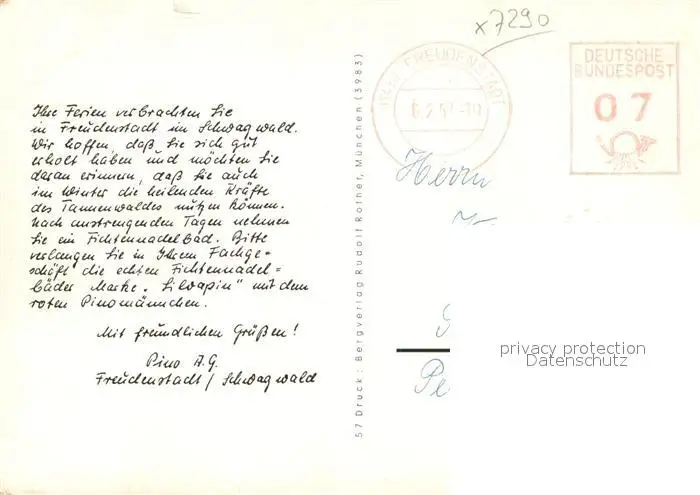 x7290
FREUDENSTADT
DEUTSCHE
BUNDESPOST
07
Ihre Ferien verbrachten Sie
in Freudenstadt im Schwarzwald.
Wir hoffen, daß Sie sich gut
erholt haben und möchten Sie
daran erinnern, daß Sie auch
im Winter die heilenden Kräfte
des Tannenwaldes nutzen können.
Nach anstrengenden Tagen nehmen
Sie ein Fichtennadelbad. Bitte
verlangen Sie in Ihrem Fachge=
schäft die echten Fichtennadel=
bäder Marke „Silvapin" mit dem
roten Pinomännchen.
Mit freundlichen Grüßen!
Pino A.G.
Freudenstadt / Schwarzwald
57 Druck: Bergverlag Rudolf Rother, München (3983)
Herrn
Pe
privacy protection
Datenschutz